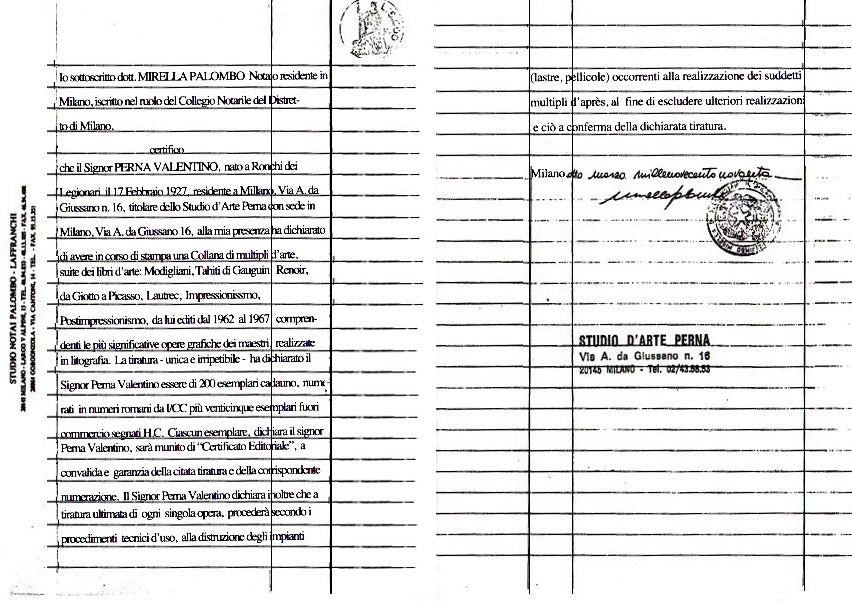 STUDIO NOTAI PALOMBO - LAFFRANCHI
Io sottoscritto dott. MIRELLA PALOMBO Notaio residente in
Milano, iscritto nel ruolo del Collegio Notarile del Distret-
to di Milano,
certifico
che il Signor PERNA VALENTINO, nato a Ronchi dei
Legionari, il 17 Febbraio 1927, residente a Millano, Via A. da
Giussano n. 16, titolare dello Studio d'Arte Perna con sede in
Milano, Via A. da Giussano 16, alla mia presenza ha dichiarato
di avere in corso di stampa una Collana di multipli d'arte,
suite dei libri d'arte: Modigliani, Tahiti di Gauguin Renoir,
da Giotto a Picasso, Lautrec, Impressionissmo,
Postimpressionismo, da lui editi dal 1962 al 1967 compren-
denti le più significative opere grafiche dei maestri, realizzate
in litografia. La tiratura - unica e irripetibile - ha dichiarato il
Signor Perna Valentino essere di 200 esemplari cadauno, nume-
rati in numeri romani da I/CC più venticinque esemplari fuori
commercio segnati H.C. Ciascun esemplare, dichiara il signor
Perna Valentino, sarà munito di "Certificato Editoriale", a
convalida e garanzia della citata tiratura e della corrispondente
numerazione. Il Signor Perna Valentino dichiara inoltre che a
tiratura ultimata di ogni singola opera, procederà secondo i
procedimenti tecnici d'uso, alla distruzione degli impianti
(lastre, pellicole) occorrenti alla realizzazione dei suddetti
multipli d'après, al fine di escludere ulteriori realizzazioni
e ciò a conferma della dichiarata tiratura.
Milano otto marzo millenovecento novanta
STUDIO D'ARTE PERNA
Via A. da Giussano n. 16
20145 MILANO - Tel. 02/43.56.53